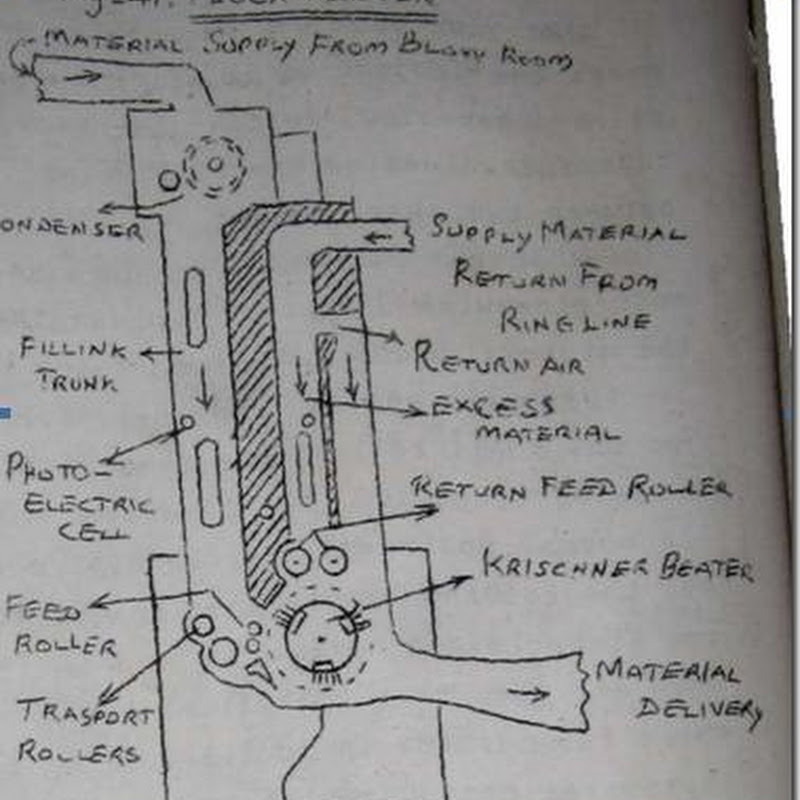 MATERIAL SUPPLY FROM BLOW ROOM
ONDENSER
SUPPLY MATERIAL
RETURN FROM
RING LINE
FILLINK
TRUNK
RETURN AIR
EXCESS
MATERIAL
PHOTO-
ELECTRIC
CELL
RETURN FEED ROLLER
KRISCHNER BEATER
FEED
ROLLER
MATERIAL
DELIVERY
TRASPORT
ROLLERS